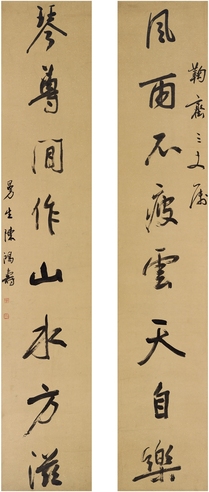 鞠齋三丈属
風雨不疲雲天自樂
琴尊閒作山水方滋
曼生陳鴻壽